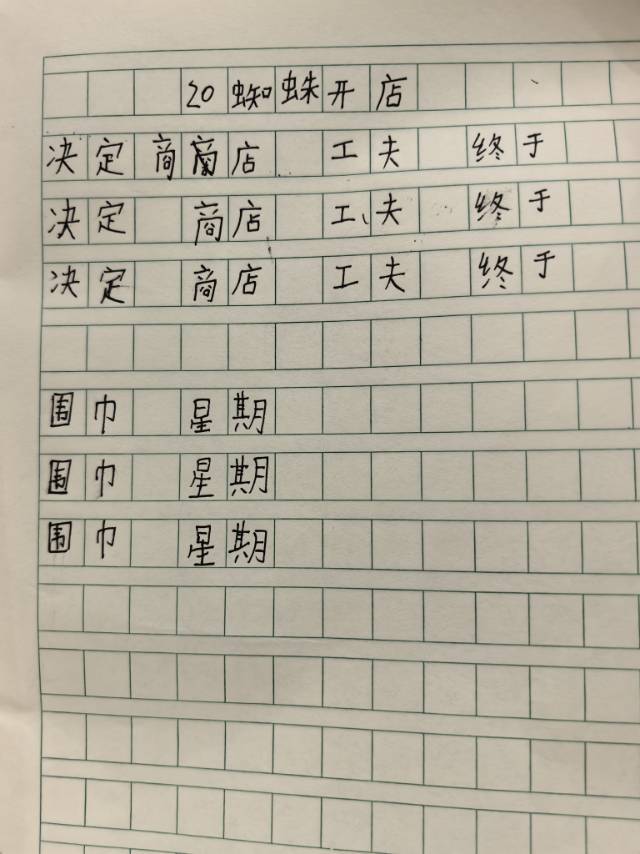 20 蜘蛛开店
决定 商商店 工夫 终于
决定 商店 工夫 终于
决定 商店 工夫 终于
围巾 星期
围巾 星期
围巾 星期